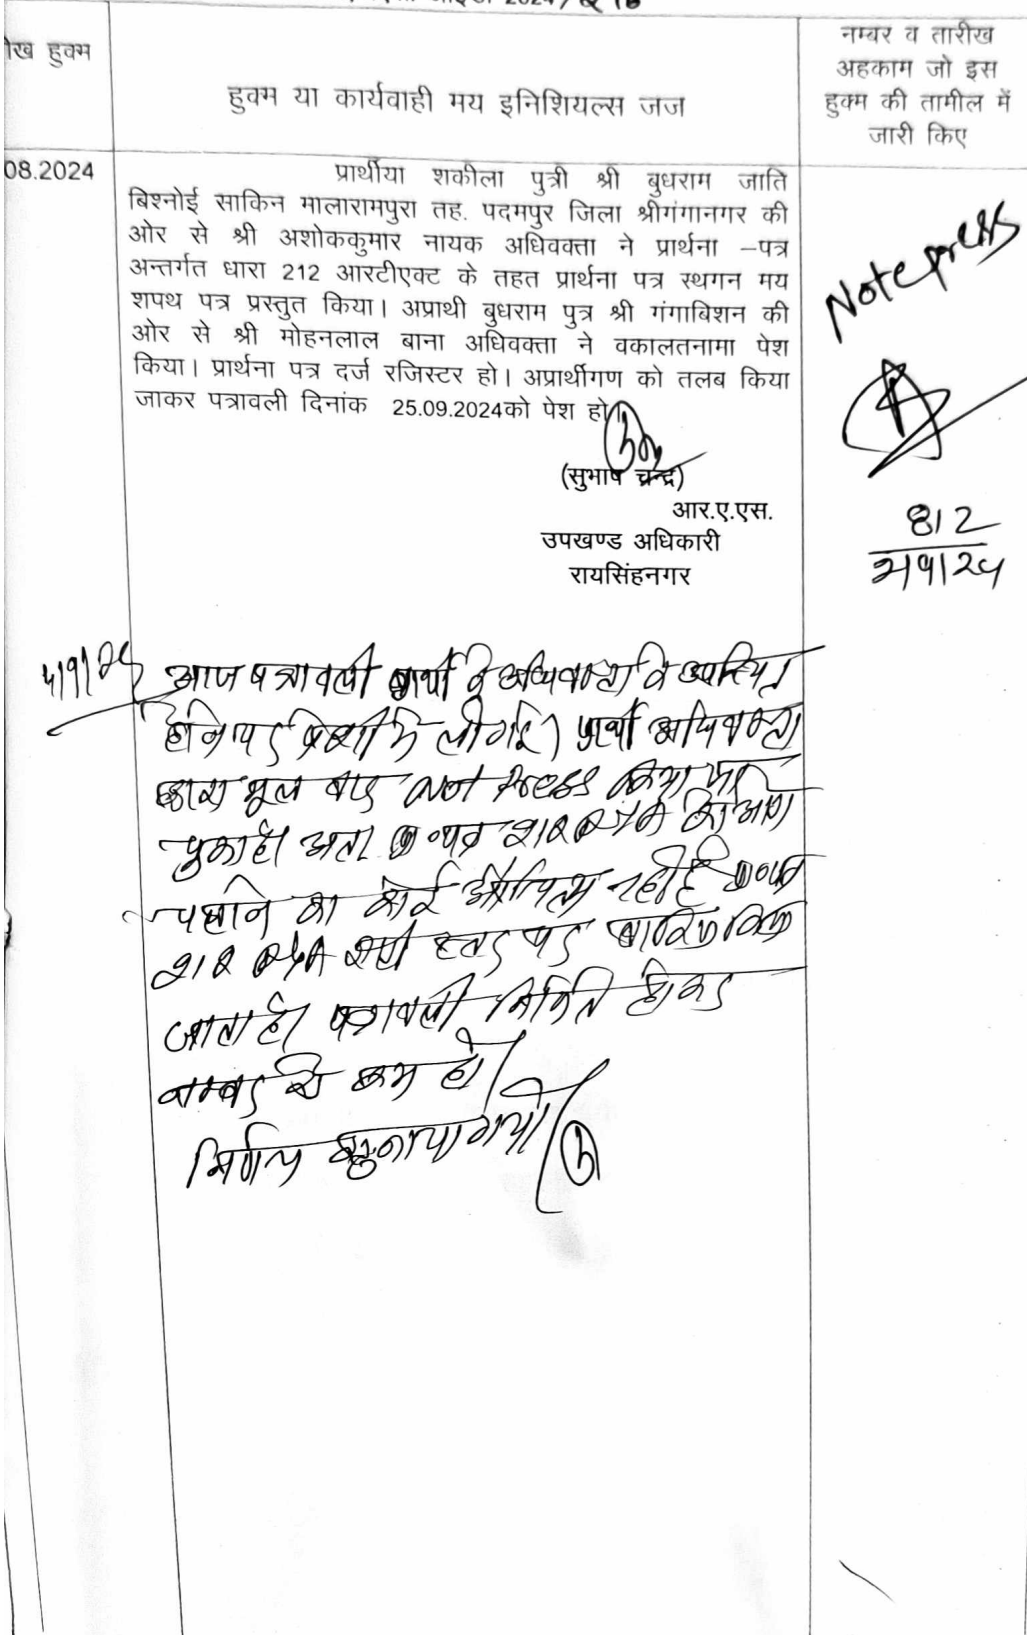 2024/
ीख हुक्म
हुक्म या कार्यवाही मय इनिशियल्स जज
नम्बर व तारीख
अहकाम जो इस
हुक्म की तामील में
जारी किए
08.2024
प्रार्थीया शकीला पुत्री श्री बुधराम जाति
बिश्नोई साकिन मालारामपुरा तह. पदमपुर जिला श्रीगंगानगर की
ओर से श्री अशोककुमार नायक अधिवक्ता ने प्रार्थना –पत्र
अन्तर्गत धारा 212 आरटीएक्ट के तहत प्रार्थना पत्र स्थगन मय
शपथ पत्र प्रस्तुत किया। अप्राथी बुधराम पुत्र श्री गंगाबिशन की
ओर से श्री मोहनलाल बाना अधिवक्ता ने वकालतनामा पेश
किया। प्रार्थना पत्र दर्ज रजिस्टर हो। अप्रार्थीगण को तलब किया
जाकर पत्रावली दिनांक 25.09.2024को पेश हो।
(सुभाष चन्द्र)
आर.ए.एस.
उपखण्ड अधिकारी
रायसिंहनगर
Note press
812
आज पत्रावली प्रार्थी के अधिवक्ता के उपस्थित
होने पर पेशी में ली गई। प्रार्थी अधिवक्ता
द्वारा मूल वाद not press किया जा
चुका है। अतः प्र०पत्र 212 RTA को आगे
चलाने का कोई औचित्य नहीं है प्र०पत्र
212 RTA इसी स्तर पर खारिज किया
जाता है। पत्रावली निर्णित होकर
नम्बर से कम हो।
निर्णय सुनाया गया।